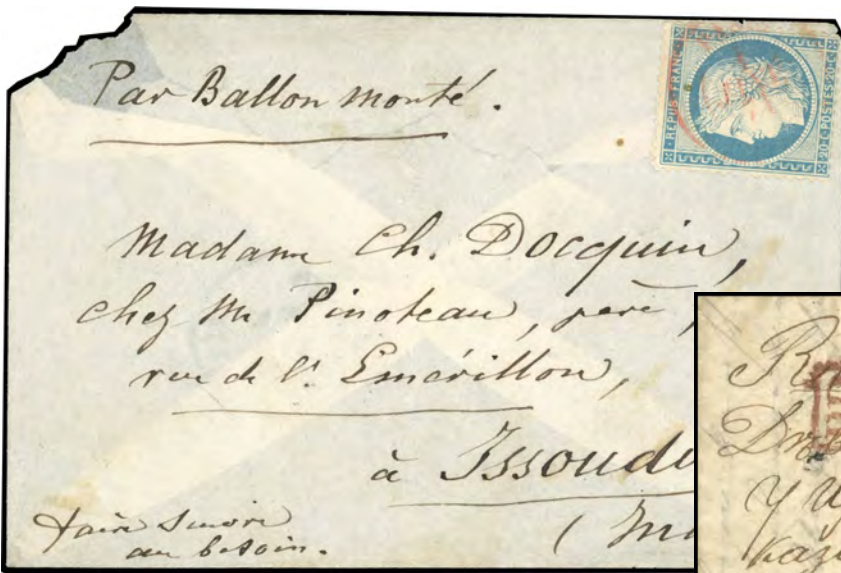 Par Ballon monté.
REPUB · FRANC ·
20 · C · POSTES · 20 · C
Madame Ch. Docquin,
chez Mr Pinoteau, père,
rue de l'Emérillon,
à Issoudu
(In
faire suivre
au besoin.
y